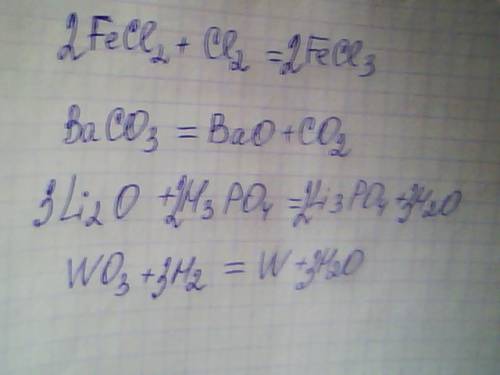 2FeCl₂ + Cl₂ = 2FeCl₃
BaCO₃ = BaO + CO₂
3Li₂O + 2H₃PO₄ = 2Li₃PO₄ + 3H₂O
WO₃ + 3H₂ = W + 3H₂O